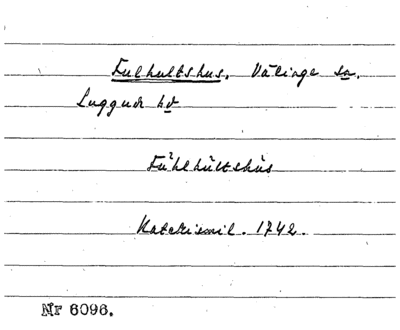 Fulhultshus. Välinge sn.
Luggude hd
Fühlhültshüs
Katekismil. 1742.
Nr 6096.